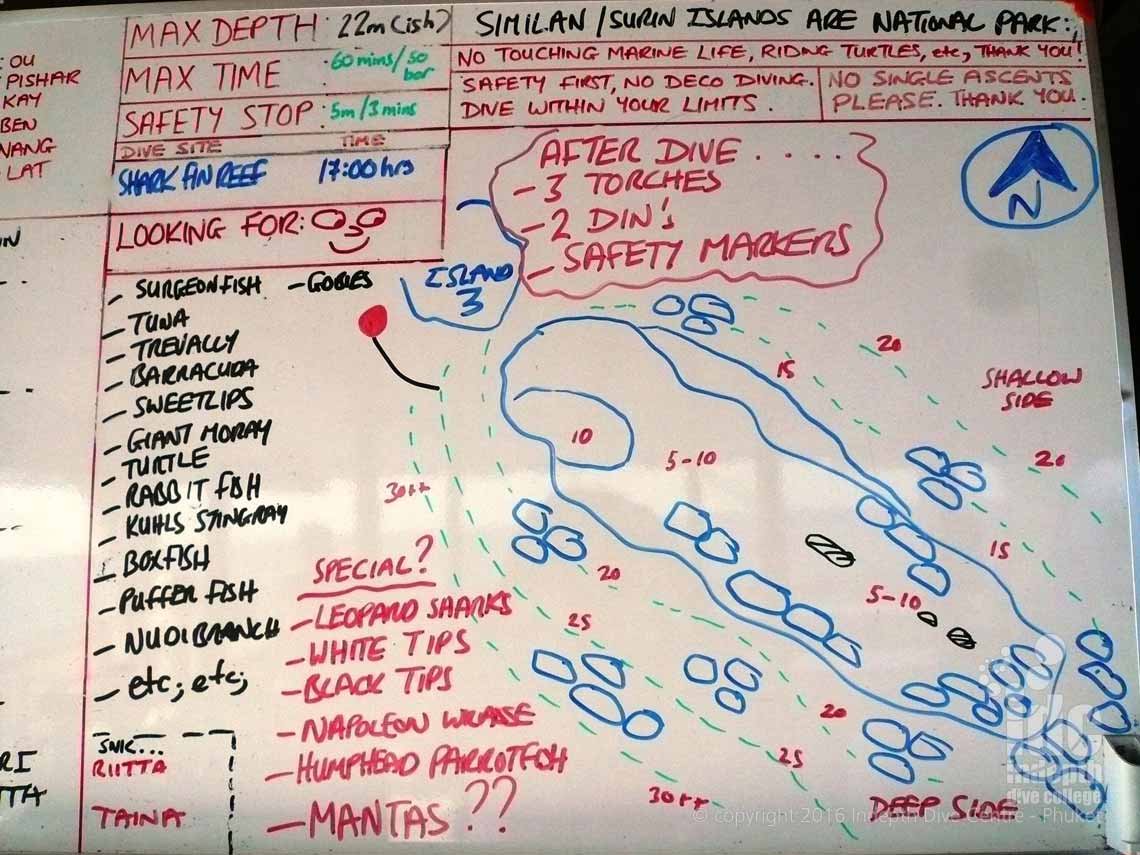 OU
PISHAR
KAY
BEN
NANG
LAT
MAX DEPTH : 22m (ish)
MAX TIME : 60 mins/50 bar
SAFETY STOP : 5m/3mins
DIVE SITE TIME
SHARK FIN REEF 17:00hrs
LOOKING FOR:
SIMILAN/SURIN ISLANDS ARE NATIONAL PARK:,
NO TOUCHING MARINE LIFE, RIDING TURTLES, etc, THANK YOU!
SAFETY FIRST, NO DECO DIVING.
DIVE WITHIN YOUR LIMITS.
NO SINGLE ASCENTS
PLEASE. THANK YOU.
AFTER DIVE .....
- 3 TORCHES
- 2 DIN'S
- SAFETY MARKERS
N
ISLAND
3
- SURGEONFISH - GOBIES
- TUNA
- TREVALLY
- BARRACUDA
- SWEETLIPS
- GIANT MORAY
- TURTLE
- RABBIT FISH
- KUHLS STINGRAY
- BOXFISH
- PUFFER FISH
- NUDIBRANCH
- etc; etc;
SPECIAL?
- LEOPARD SHARKS
- WHITE TIPS
- BLACK TIPS
- NAPOLEON WRASSE
- HUMPHEAD PARROTFISH
- MANTAS ??
SNK...
RIITTA
TAINA
20
15
SHALLOW
SIDE
10
5-10
20
30++
15
20
5-10
25
20
25
30++
DEEP SIDE
idc
indepth
dive college
© copyright 2016 Indepth Dive Centre - Phuket